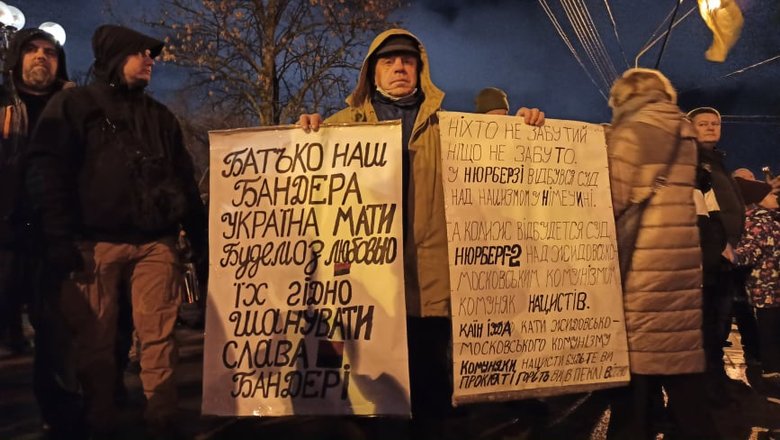 БАТЬКО НАШ
БАНДЕРА
УКРАЇНА МАТИ
БУДЕМО З ЛЮБОВЬЮ
ЇХ ГІДНО
ШАНУВАТИ
СЛАВА
БАНДЕРІ
НІХТО НЕ ЗАБУТИЙ
НІЩО НЕ ЗАБУТО.
У НЮРБЕРЗІ ВІДБУВСЯ СУД
НАД НАЦИЗМОМ У НІМЕЧИНІ.
ТА КОЛИСЬ ВІДБУДЕТЬСЯ СУД,
НЮРБЕРГ2 НАД ЖИДОВСЬКО-
МОСКОВСЬКИМ КОМУНІЗМОМ
КОМУНЯК НАЦИСТІВ.
КАТИ ЖИДОВСЬКО-
МОСКОВСЬКОГО КОМУНІЗМУ
КОМУНЯКИ НАЦИСТИ БУДЬТЕ ВИ
ПРОКЛЯТІ ГОРІТЬ ВИ В ПЕКЛІ